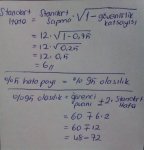 Standart Hata = Standart Sapma · √1 - güvenirlik katsayısı
= 12 · √1-0,75
= 12 · √0,25
= 12 · 0,5
= 6 //
%5 hata payı = %95 olasılık
%95 olasılık = öğrenci puanı ± 2 · Standart Hata
= 60 ∓ 6 · 2
= 60 ∓ 12
= 48 - 72